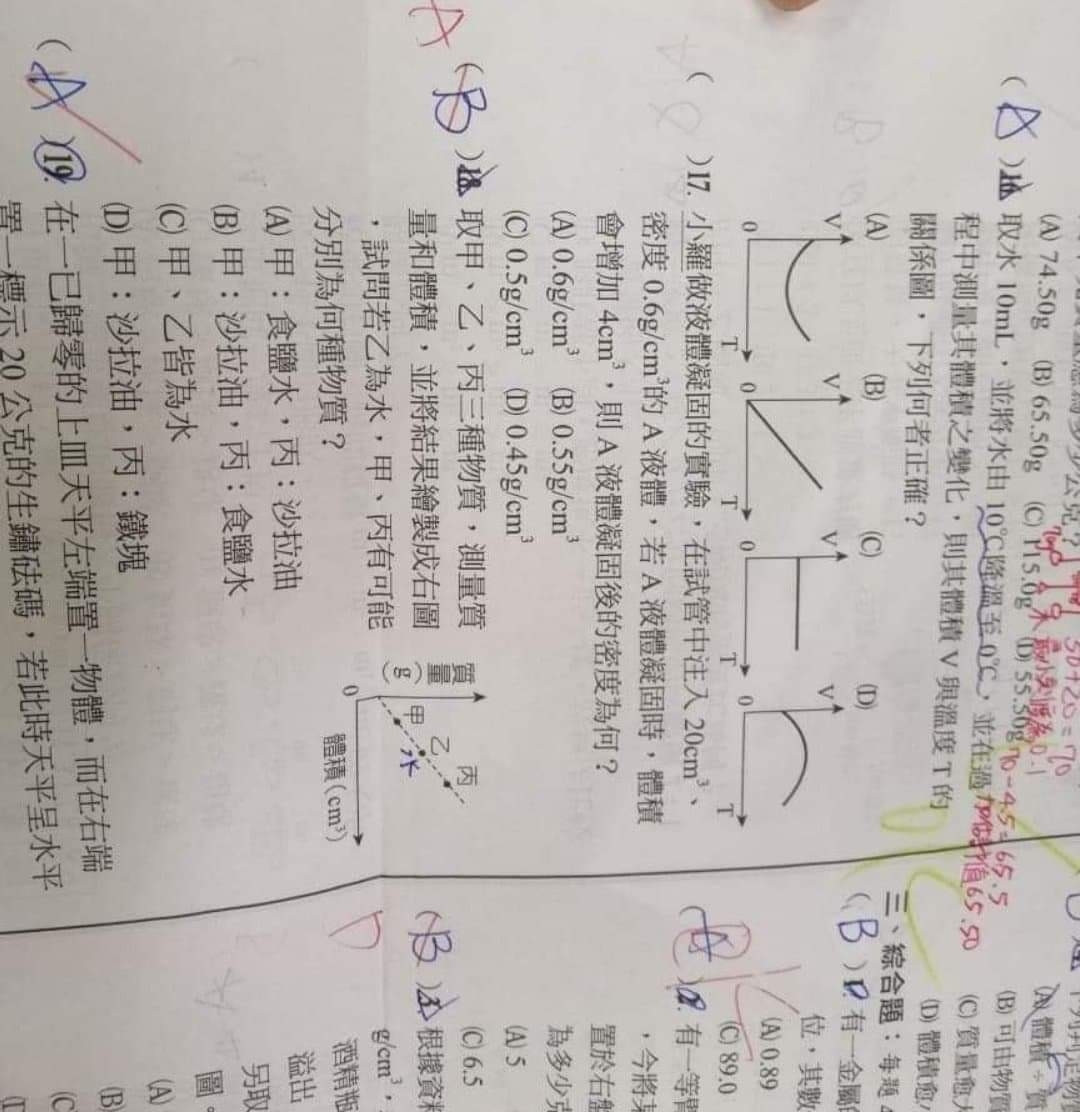 (A) 74.50g (B) 65.50g (C) 115.0g (D) 55.50g
50+20=70
70-4.5=65.5
65.50
(A)16. 取水 10mL，並將水由 10℃降溫至 0℃，並在過
程中測量其體積之變化，則其體積 V 與溫度 T 的
關係圖，下列何者正確？
(A) (B) (C) (D)
V V V V
0 T 0 T 0 T 0 T
( )17. 小羅做液體凝固的實驗，在試管中注入 20cm³、
密度 0.6g/cm³的 A 液體，若 A 液體凝固時，體積
會增加 4cm³，則 A 液體凝固後的密度為何？
(A) 0.6g/cm³ (B) 0.55g/cm³
(C) 0.5g/cm³ (D) 0.45g/cm³
A
(B)18. 取甲、乙、丙三種物質，測量質
量和體積，並將結果繪製成右圖
，試問若乙為水，甲、丙有可能
分別為何種物質？
(A) 甲：食鹽水，丙：沙拉油
(B) 甲：沙拉油，丙：食鹽水
(C) 甲、乙皆為水
(D) 甲：沙拉油，丙：鐵塊
質量(g)
甲 乙 丙
水
0 體積(cm³)
(A)19. 在一已歸零的上皿天平左端置一物體，而在右端
置一標示 20 公克的生鏽砝碼，若此時天平呈水平
(A) 體積÷質
(B) 可由物質
(C) 質量愈大
(D) 體積愈
三、綜合題：每題
(B)1. 有一金屬
位，其數
(A) 0.89
(C) 89.0
(A)2. 有一等臂
，今將某
置於右盤
為多少克
(A) 5
(C) 6.5
D
(B)3. 根據資料
g/cm³，
酒精瓶
溢出
另取
圖。
(A)
(B)
(C)